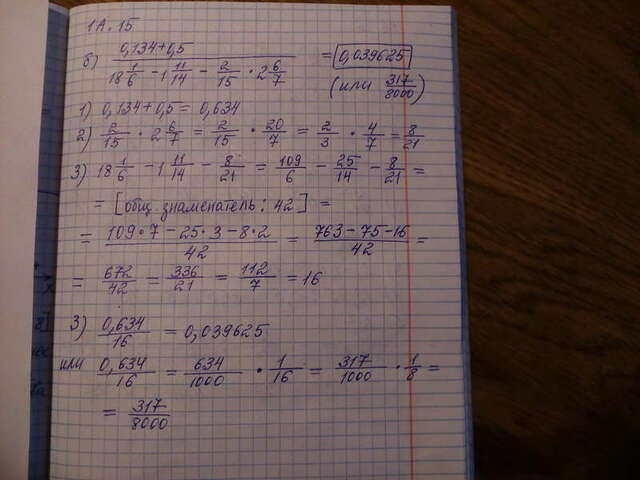 1А.15
б) (0,134+0,5)/(18 1/6 − 1 11/14 − 2/15 · 2 6/7) = 0,039625
(или 317/8000)
1) 0,134+0,5 = 0,634
2) 2/15 · 2 6/7 = 2/15 · 20/7 = 2/3 · 4/7 = 8/21
3) 18 1/6 − 1 11/14 − 8/21 = 109/6 − 25/14 − 8/21 =
= [общ. знаменатель: 42] =
= (109·7 − 25·3 − 8·2)/42 = (763−75−16)/42 =
= 672/42 = 336/21 = 112/7 = 16
3) 0,634/16 = 0,039625
или 0,634/16 = 634/1000 · 1/16 = 317/1000 · 1/8 =
= 317/8000